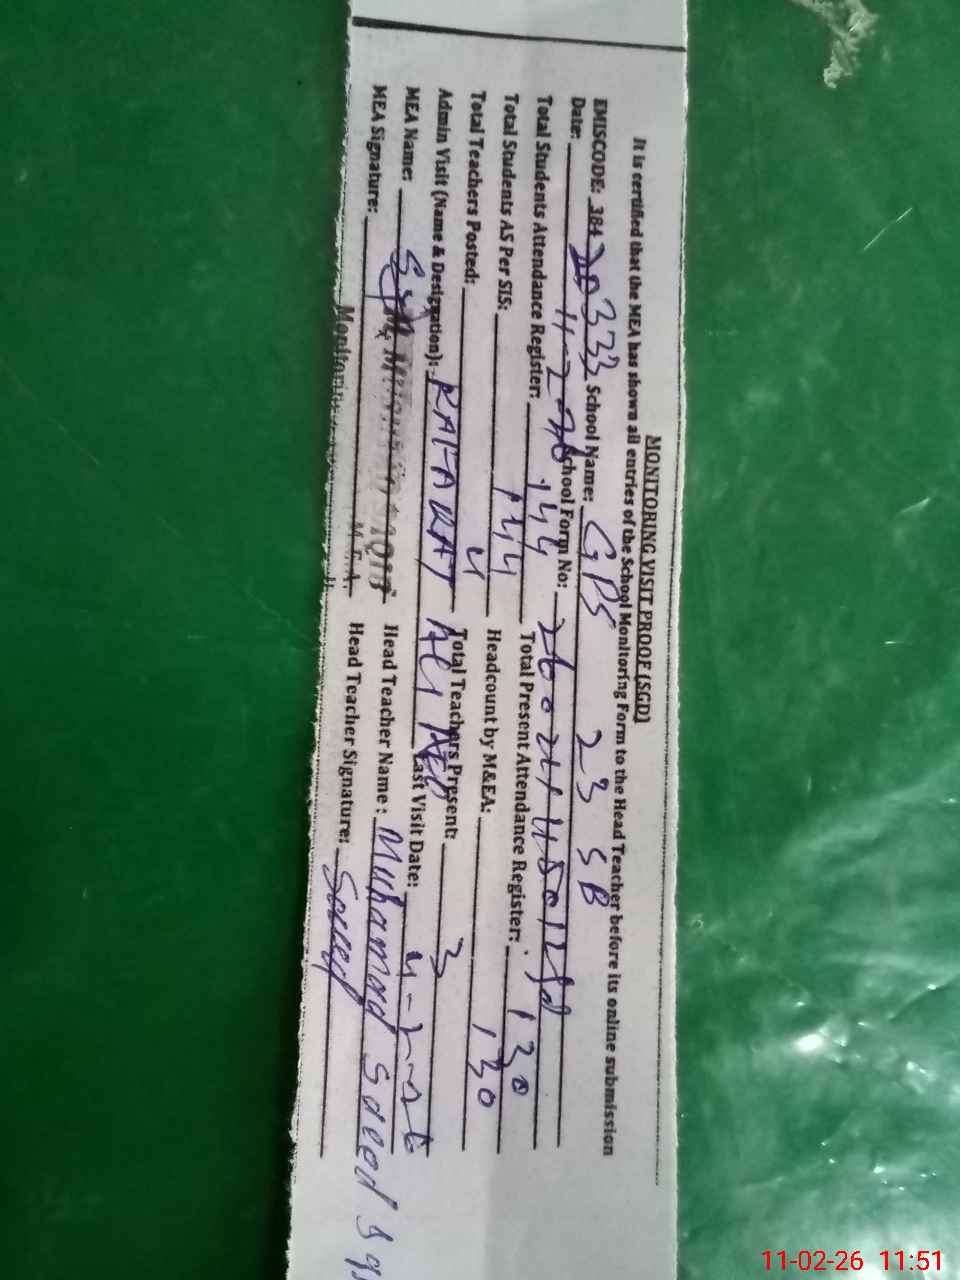 MONITORING VISIT PROOF (SGD)
It is certified that the MEA has shown all entries of the School Monitoring Form to the Head Teacher before its online submission
EMISCODE: 384 20333 School Name: GPS 23 SB
Date: 11-2-26 School Form No:
Total Students Attendance Register: 144 Total Present Attendance Register: 130
Total Students AS Per SIS: 144 Headcount by M&EA: 130
Total Teachers Posted: 4 Total Teachers Present: 3
Admin Visit (Name & Designation): KAFAYAT Ali AEO Last Visit Date: 4-2-26
MEA Name: Head Teacher Name: Muhamad Saeed
MEA Signature: M.E.A. Head Teacher Signature: Saeed
11-02-26 11:51